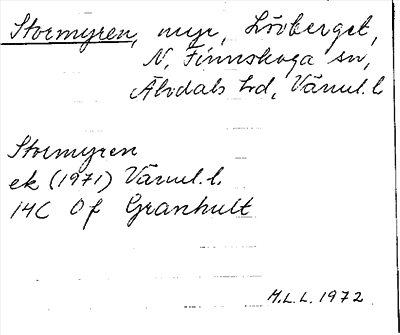 Stormyren, myr, Lövberget,
N. Finnskoga sn,
Älvdals hd, Värml. l.
Stormyren
ek (1971) Värml. l.
14C 0f Granhult
M.L.L. 1972